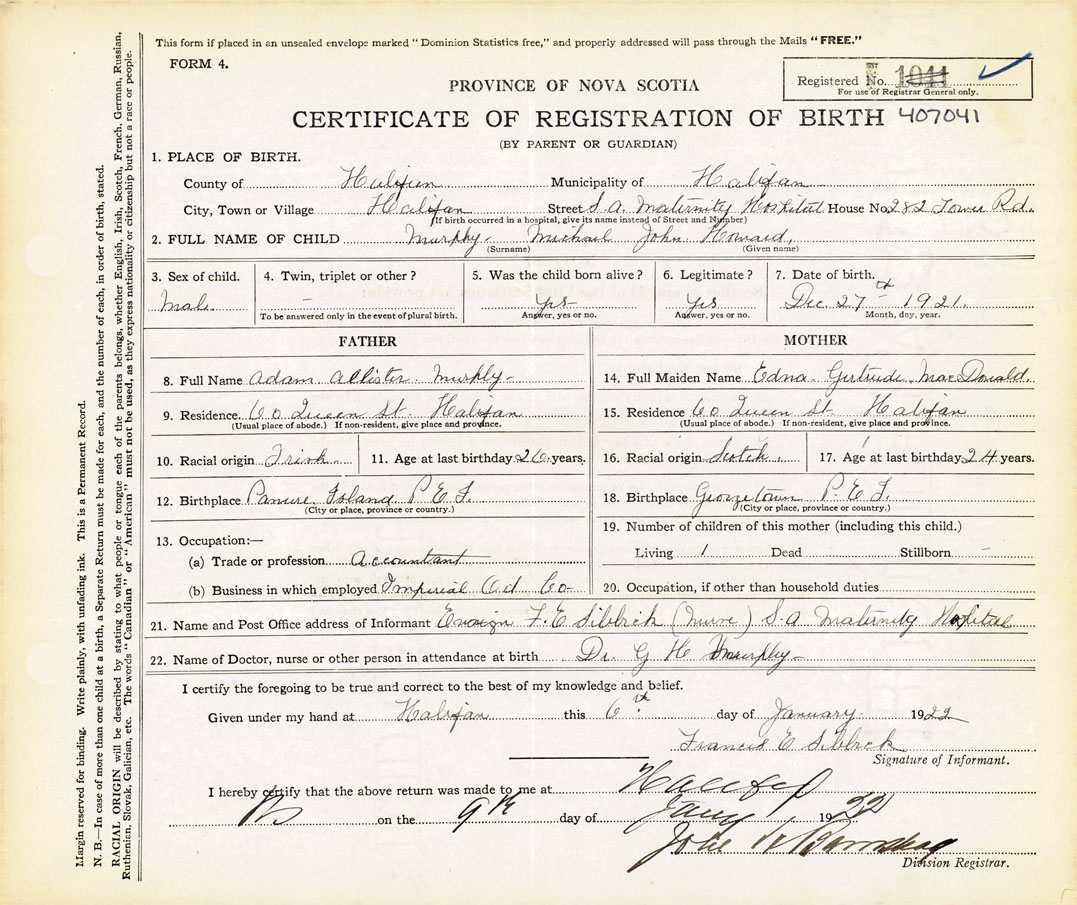 This form if placed in an unsealed envelope marked "Dominion Statistics free," and properly addressed will pass through the Mails "FREE."
FORM 4.
Registered No. 1041
For use of Registrar General only.
PROVINCE OF NOVA SCOTIA
CERTIFICATE OF REGISTRATION OF BIRTH 407041
(BY PARENT OR GUARDIAN)
1. PLACE OF BIRTH.
County of Halifax Municipality of Halifax
City, Town or Village Halifax Street S. A. Maternity Hospital House No 282 Tower Rd.
(If birth occurred in a hospital, give its name instead of Street and Number)
2. FULL NAME OF CHILD Murphy- Michael John Howard,
(Surname) (Given name)
3. Sex of child. 4. Twin, triplet or other? 5. Was the child born alive? 6. Legitimate? 7. Date of birth.
Male. – Yes Yes Dec. 27th 1921.
To be answered only in the event of plural birth. Answer, yes or no. Answer, yes or no. Month, day, year.
FATHER
8. Full Name Adam Allister Murphy-
9. Residence. 60 Queen St. Halifax
(Usual place of abode.) If non-resident, give place and province.
10. Racial origin Irish 11. Age at last birthday 26 years.
12. Birthplace Panure Island P. E. I.
(City or place, province or country.)
13. Occupation:—
(a) Trade or profession Accountant
(b) Business in which employed Imperial Oil Co-
MOTHER
14. Full Maiden Name Edna Gertrude MacDonald.
15. Residence 60 Queen St Halifax
(Usual place of abode.) If non-resident, give place and province.
16. Racial origin Scotch. 17. Age at last birthday 24 years.
18. Birthplace Georgetown P. E. I.
(City or place, province or country.)
19. Number of children of this mother (including this child.)
Living 1 Dead Stillborn -
20. Occupation, if other than household duties
21. Name and Post Office address of Informant Ensign F. E Sibbick (Nurse) S. A Maternity Hospital
22. Name of Doctor, nurse or other person in attendance at birth Dr. G H Murphy-
I certify the foregoing to be true and correct to the best of my knowledge and belief.
Given under my hand at Halifax this 6th day of January. 1922
Francis E Sibbick
Signature of Informant.
I hereby certify that the above return was made to me at Halifax
NS on the 9th day of Jany 1922
John
Division Registrar.
Margin reserved for binding. Write plainly, with unfading ink. This is a Permanent Record.
N. B.—In case of more than one child at a birth, a Separate Return must be made for each, and the number of each, in order of birth, stated.
RACIAL ORIGIN will be described by stating to what people or tongue each of the parents belongs, whether English, Irish, Scotch, French, German, Russian,
Ruthenian, Slovak, Galician, etc. The words "Canadian" or "American" must not be used, as they express nationality or citizenship but not a race or people.